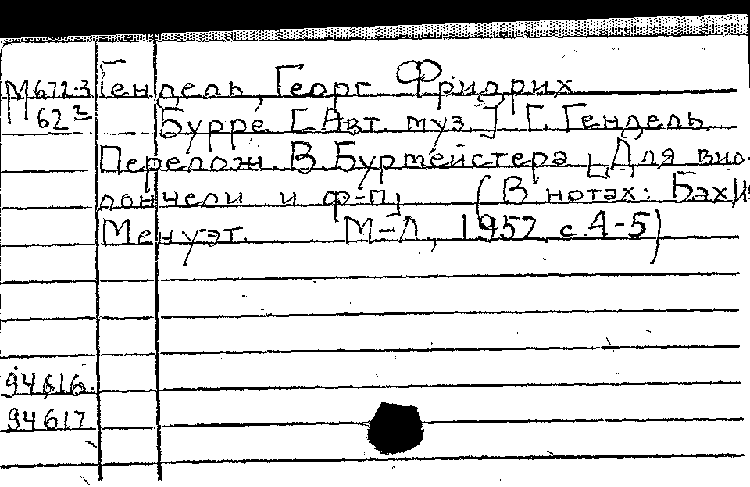 М672-3 Гендель, Георг Фридрих
62² Бурре [Авт. муз.] Г. Гендель
Перелож. В. Бурмейстера [Для вио-
лончели и ф-п] (В нотах: Бах И
Менуэт. М-Л, 1957, с. 4-5)
94616.
94617